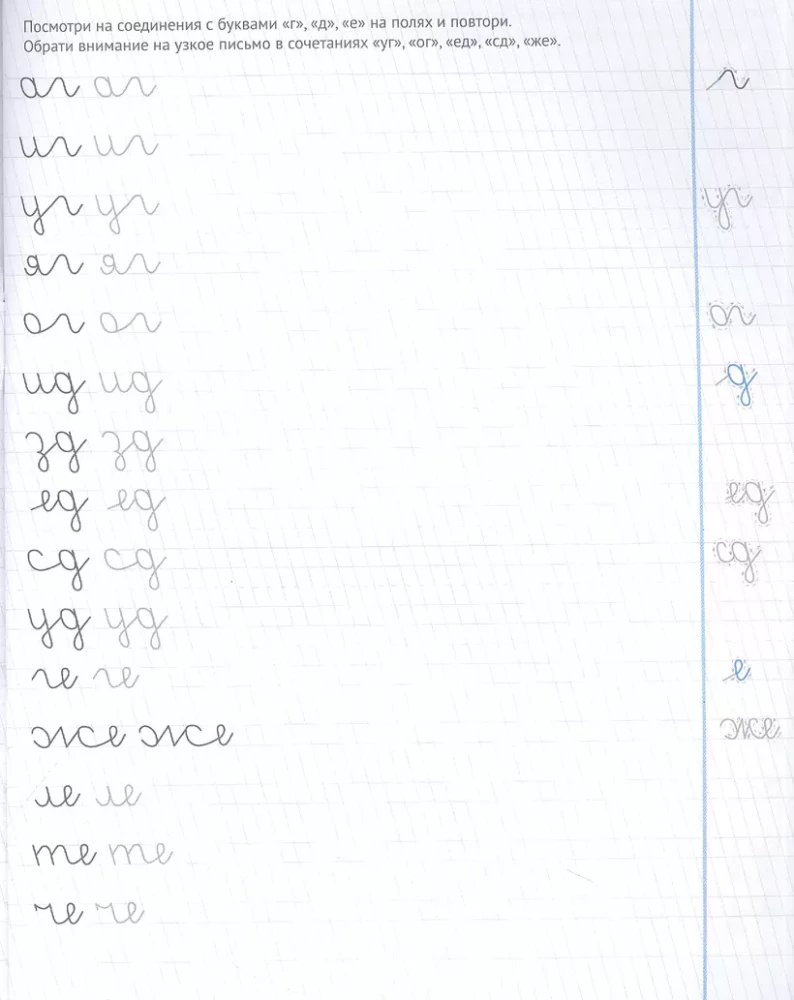 Посмотри на соединения с буквами «г», «д», «е» на полях и повтори.
Обрати внимание на узкое письмо в сочетаниях «уг», «ог», «ед», «сд», «же».
аг аг г
иг иг
уг уг уг
яг яг
ог ог ог
ид ид д
зд зд
ед ед ед
сд сд сд
уд уд
ге ге е
же же же
ле ле
те те
че че